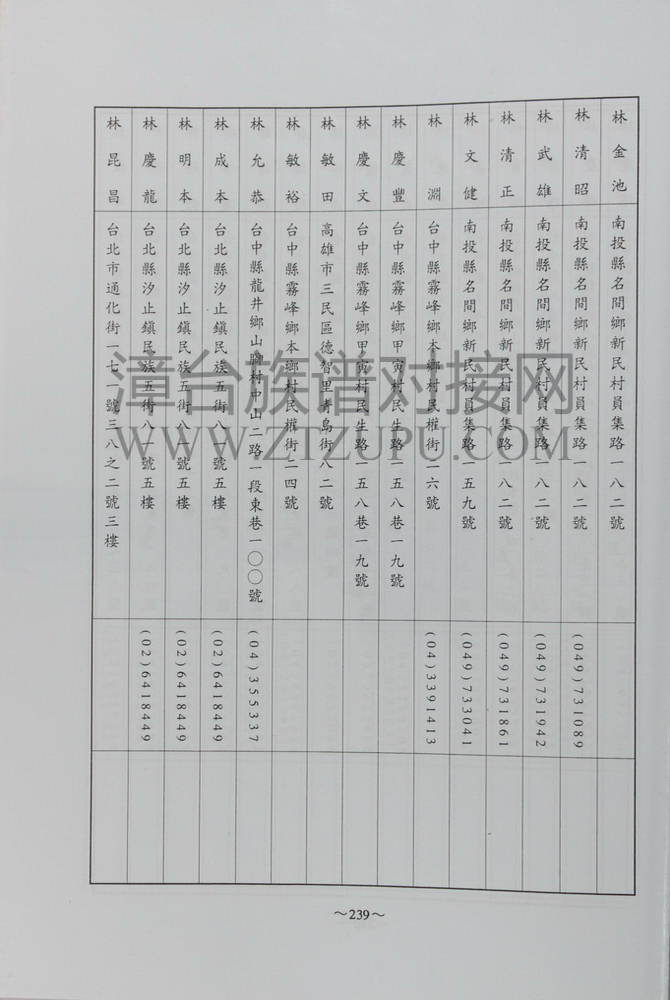 林金池 南投縣名間鄉新民村員集路一八二號
林清昭 南投縣名間鄉新民村員集路一八二號 (049)731089
林武雄 南投縣名間鄉新民村員集路一八二號 (049)731942
林清正 南投縣名間鄉新民村員集路一八二號 (049)731861
林文健 南投縣名間鄉新民村員集路一五九號 (049)733041
林淵 台中縣霧峰鄉本鄉村民權街二六號 (04)3391413
林慶豐 台中縣霧峰鄉甲寅村民生路一五八巷一九號
林慶文 台中縣霧峰鄉甲寅村民生路一五八巷一九號
林敏田 高雄市三民區德智里青島街八二號
林敏裕 台中縣霧峰鄉本鄉村民權街二四號
林允恭 台中縣龍井鄉山腳村中山二路一段東巷一〇〇號 (04)355337
林成本 台北縣汐止鎮民族五街八一號五樓 (02)6418449
林明本 台北縣汐止鎮民族五街八一號五樓 (02)6418449
林慶龍 台北縣汐止鎮民族五街八一號五樓 (02)6418449
林昆昌 台北市通化街一七一號三八之二號三樓
～239～
漳台族谱对接网
WWW.ZTZUPU.COM